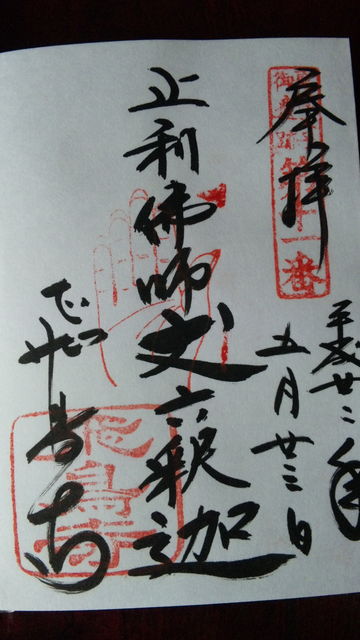 奉拝
第十一番
平成廿二年
五月廿三日
止利佛師丈六釈迦
飛鳥寺
飛鳥寺